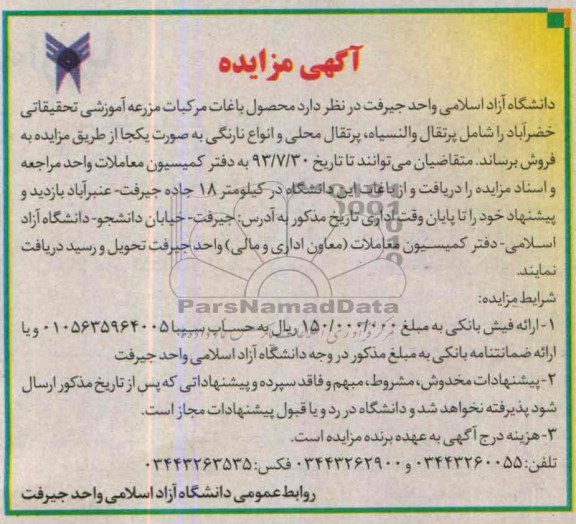 آگهی مزایده
دانشگاه آزاد اسلامی واحد جیرفت در نظر دارد محصول باغات مرکبات مزرعه آموزشی تحقیقاتی
خضرآباد را شامل پرتقال والنسیاه، پرتقال محلی و انواع نارنگی به صورت یکجا از طریق مزایده به
فروش برساند. متقاضیان می‌توانند تا تاریخ ۹۳/۷/۳۰ به دفتر کمیسیون معاملات واحد مراجعه
و اسناد مزایده را دریافت و از باغات این دانشگاه در کیلومتر ۱۸ جاده جیرفت- عنبرآباد بازدید و
پیشنهاد خود را تا پایان وقت اداری تاریخ مذکور به آدرس: جیرفت- خیابان دانشجو- دانشگاه آزاد
اسلامی- دفتر کمیسیون معاملات (معاون اداری و مالی) واحد جیرفت تحویل و رسید دریافت
نمایند.
ParsNamadData
شرایط مزایده:
۱- ارائه فیش بانکی به مبلغ ۱۵۰/۰۰۰/۰۰۰ ریال به حساب سیبا ۰۱۰۵۶۳۵۹۶۴۰۰۵ و یا
ارائه ضمانتنامه بانکی به مبلغ مذکور در وجه دانشگاه آزاد اسلامی واحد جیرفت
۲- پیشنهادات مخدوش، مشروط، مبهم و فاقد سپرده و پیشنهاداتی که پس از تاریخ مذکور ارسال
شود پذیرفته نخواهد شد و دانشگاه در رد و یا قبول پیشنهادات مجاز است.
۳- هزینه درج آگهی به عهده برنده مزایده است.
تلفن: ۰۳۴۴۳۲۶۰۰۵۵ و ۰۳۴۴۳۲۶۲۹۰۰ فکس: ۰۳۴۴۳۲۶۳۵۳۵
روابط عمومی دانشگاه آزاد اسلامی واحد جیرفت